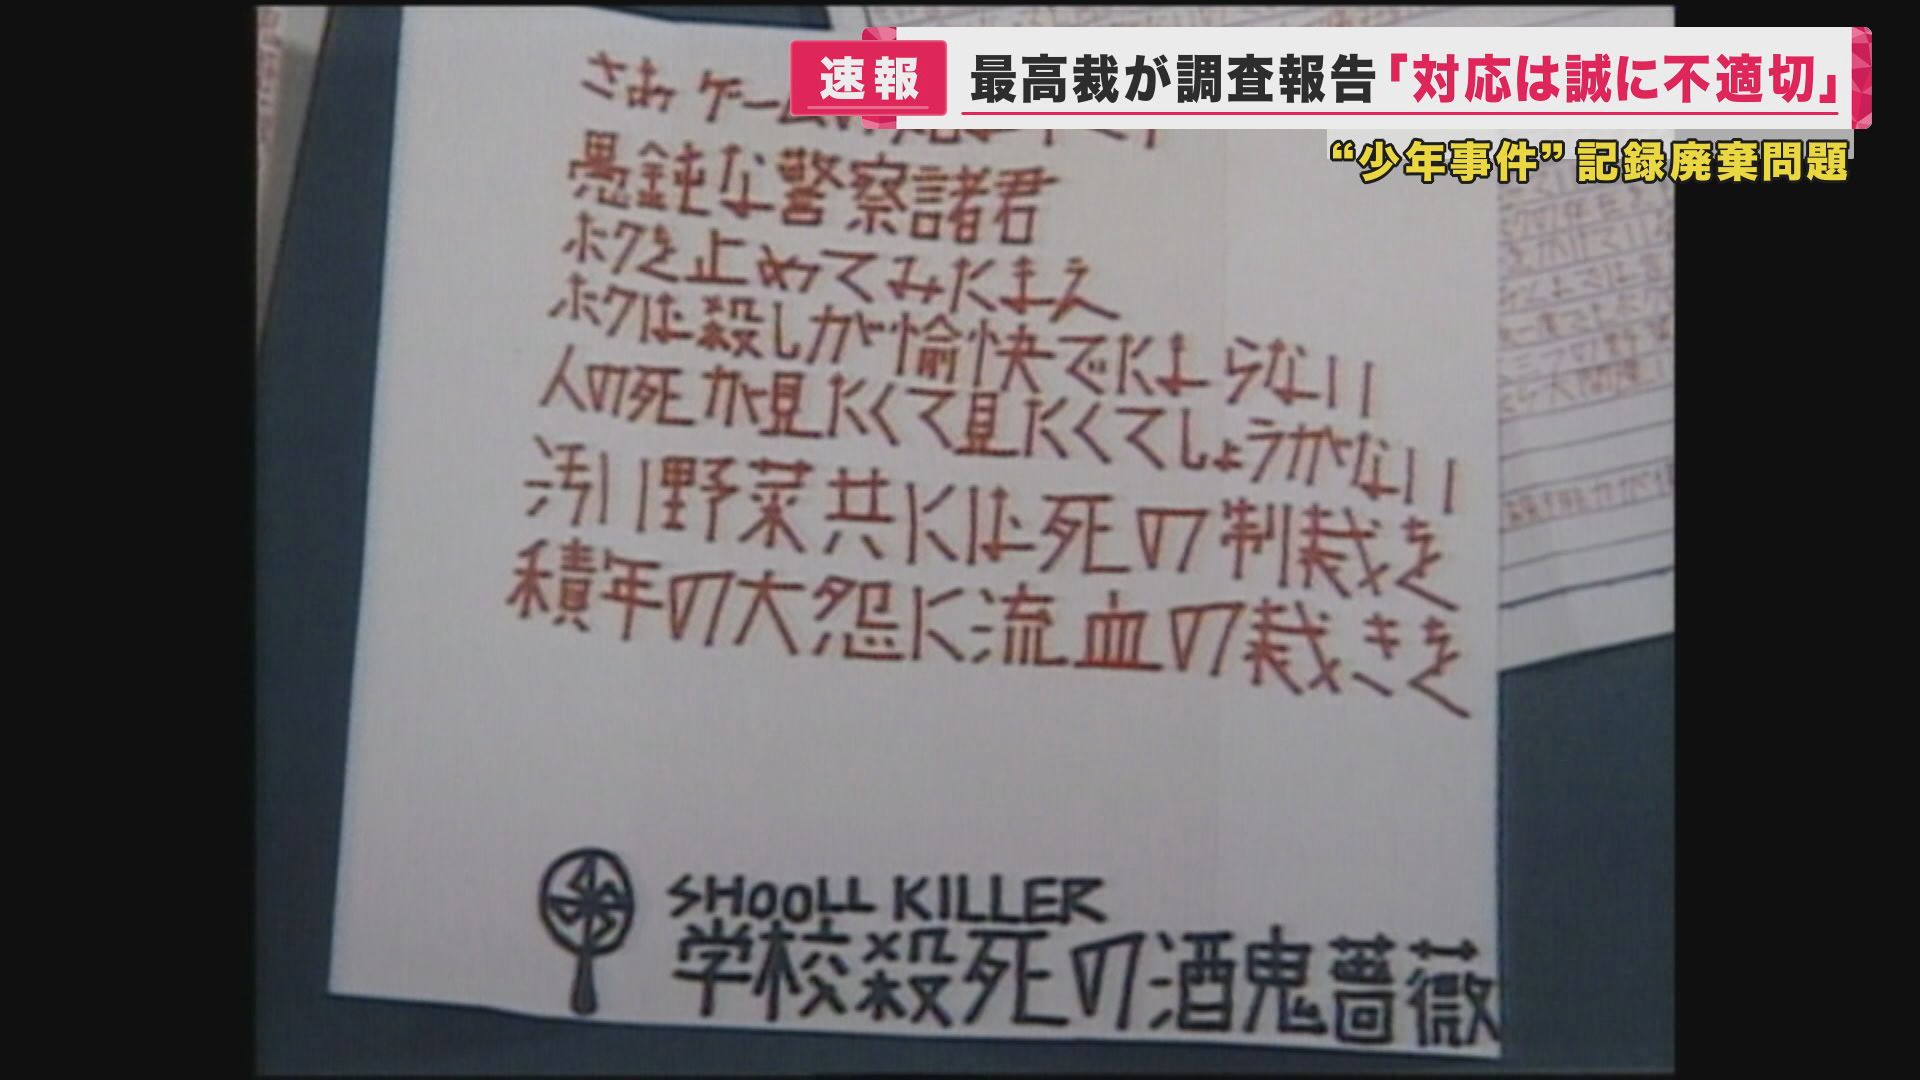 速報
最高裁が調査報告「対応は誠に不適切」
“少年事件”記録廃棄問題
さあ ゲーム
愚鈍な警察諸君
ボクを止めてみたまえ
ボクは殺しが愉快でたまらない
人の死が見たくて見たくてしょうがない
汚い野菜共には死の制裁を
積年の大怨に流血の裁きを
SHOOLL KILLER
学校殺死の酒鬼薔薇